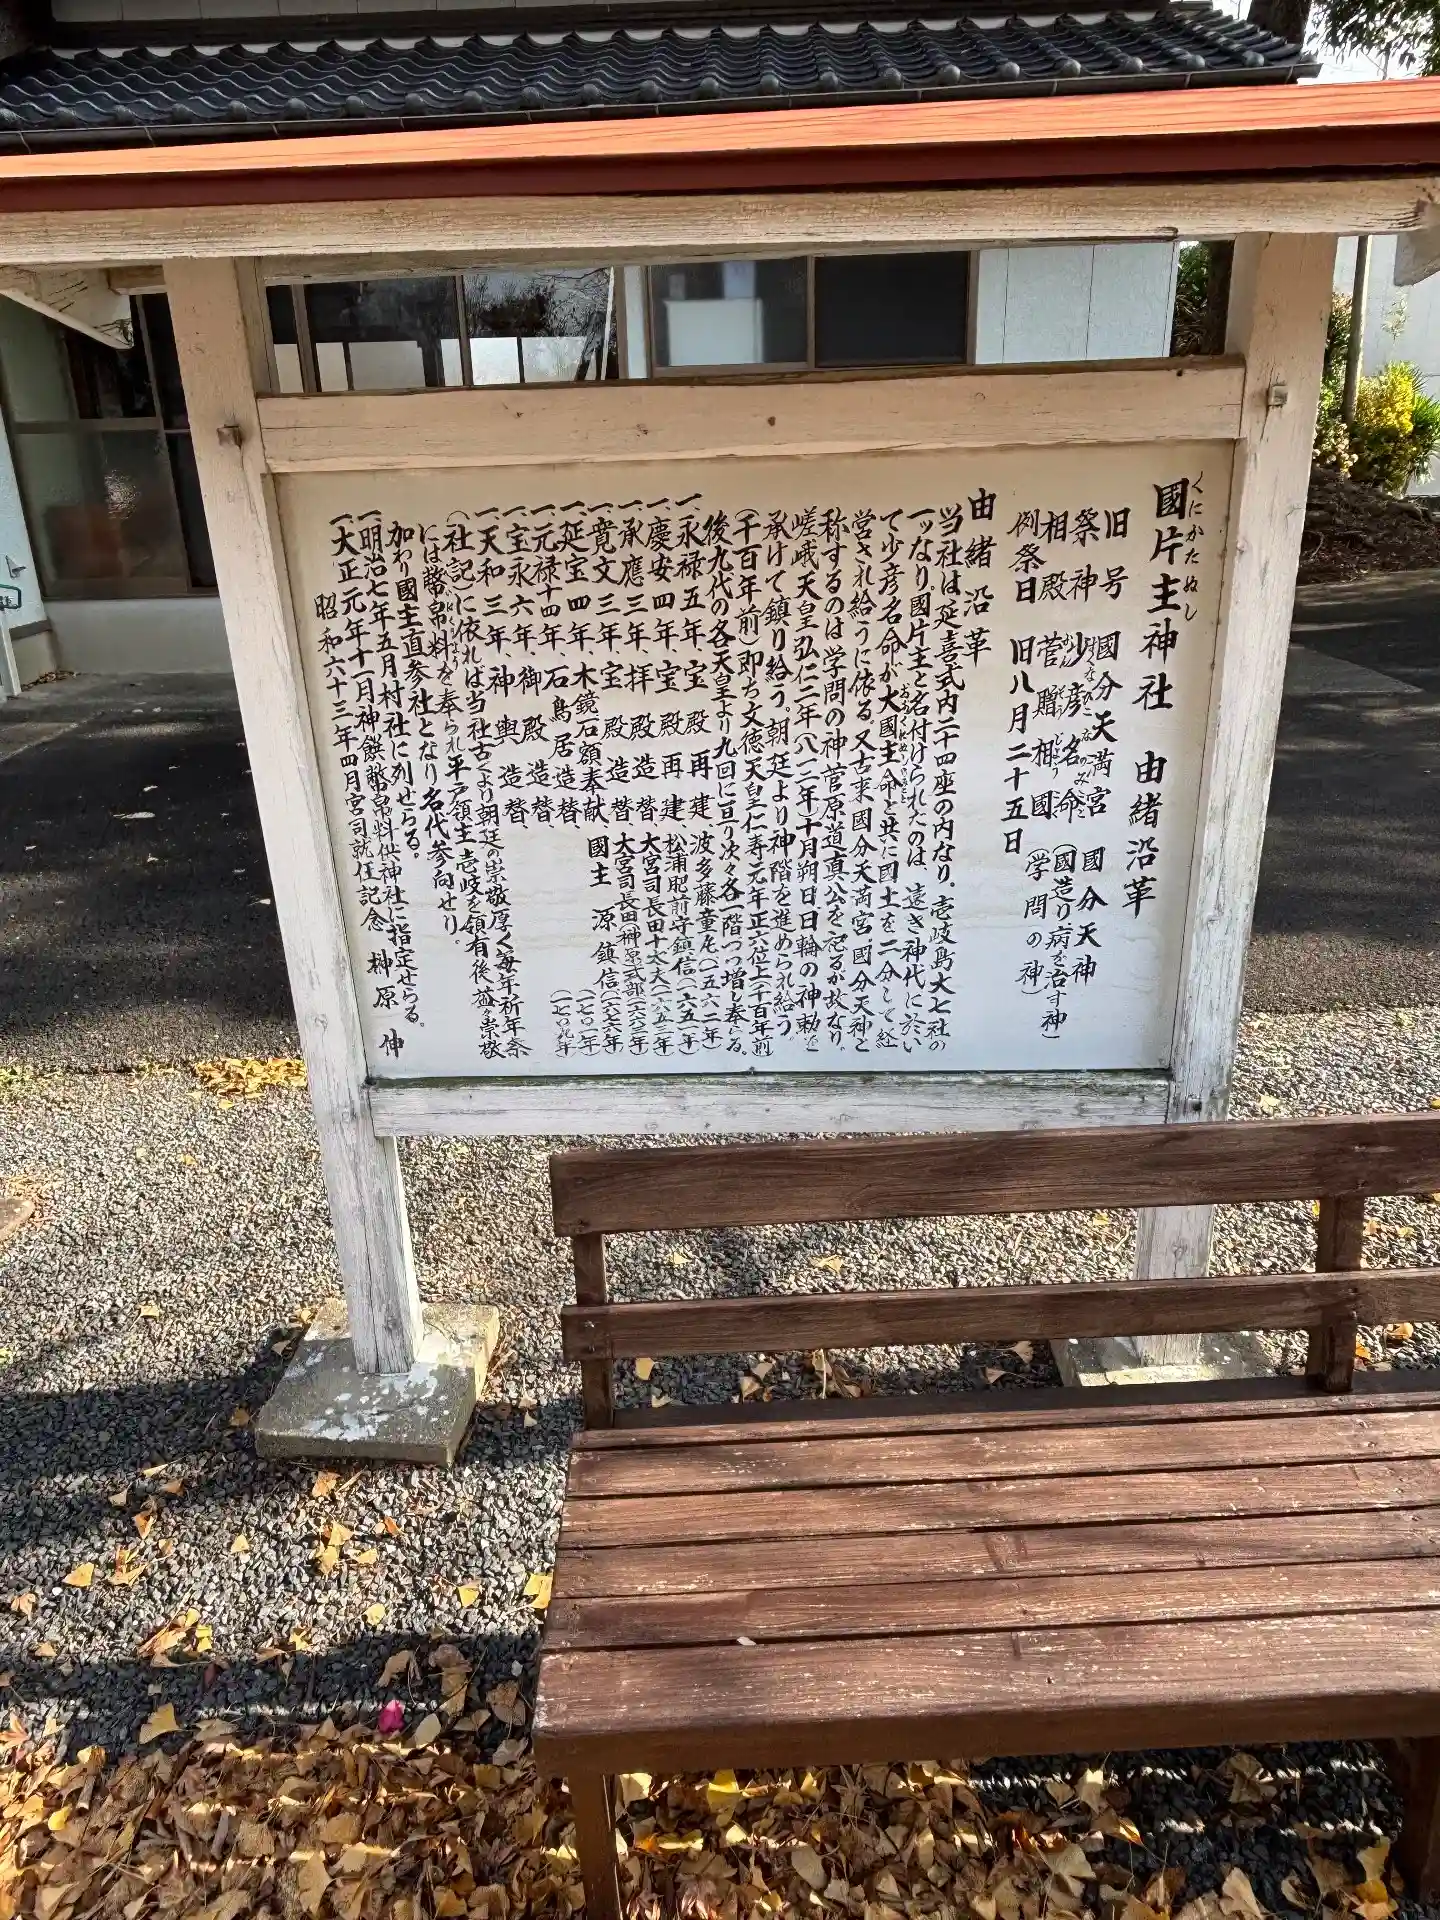 國片主神社　由緒沿革
くにかたぬし
旧号　國分天満宮　國分天神
祭神　少彦名命（國造り病を治す神）
相殿　菅贈相國（学問の神）
例祭日　旧八月二十五日
由緒沿革
当社は延喜式内二十四座の内なり。壱岐島大七社の
一ッなり。國片主と名付けられたのは、遠き神代に於い
て少彦名命が大國主命と共に國土を二分して経
営され給うに依る。又古来國分天満宮國分天神と
称するのは学問の神菅原道真公を祀るが故なり。
嵯峨天皇弘仁二年（八一二年）十月朔日日輪の神勅を
承けて鎮り給う。朝廷より神階を進められ給う。
（千百年前）即ち文徳天皇仁寿元年正六位上（千百年前
後九代の各天皇より九回に亘り次々各一階づつ増し奉らる。
一、永禄五年、宝殿再建　波多藤童丸（一五六二年）
一、慶安四年、宝殿再建　松浦肥前守鎮信（一六五一年）
一、承應三年、拝殿造替、大宮司長田十太夫（一六五三年）
一、寛文三年、宝殿造替、大宮司長田（榊原）式部（一六六三年）
一、延宝四年、木鏡石額奉献、國主　源鎮信（一六七六年）
一、元禄十四年、石鳥居造替、（一七〇一年）
一、宝永六年、御殿造替、（一七〇九年）
一、天和三年、神輿造替、
（社記）に依れば当社古くより朝廷の崇敬厚く毎年祈年祭
には幣帛料を奉られ平戸領主壱岐を領有後益々崇敬
加わり國主直参社となり名代参向せり。
一、明治七年五月村社に列せらる。
一、大正元年十一月神饌幣帛料供神社に指定せらる。
昭和六十三年四月宮司就任記念　榊原　伸